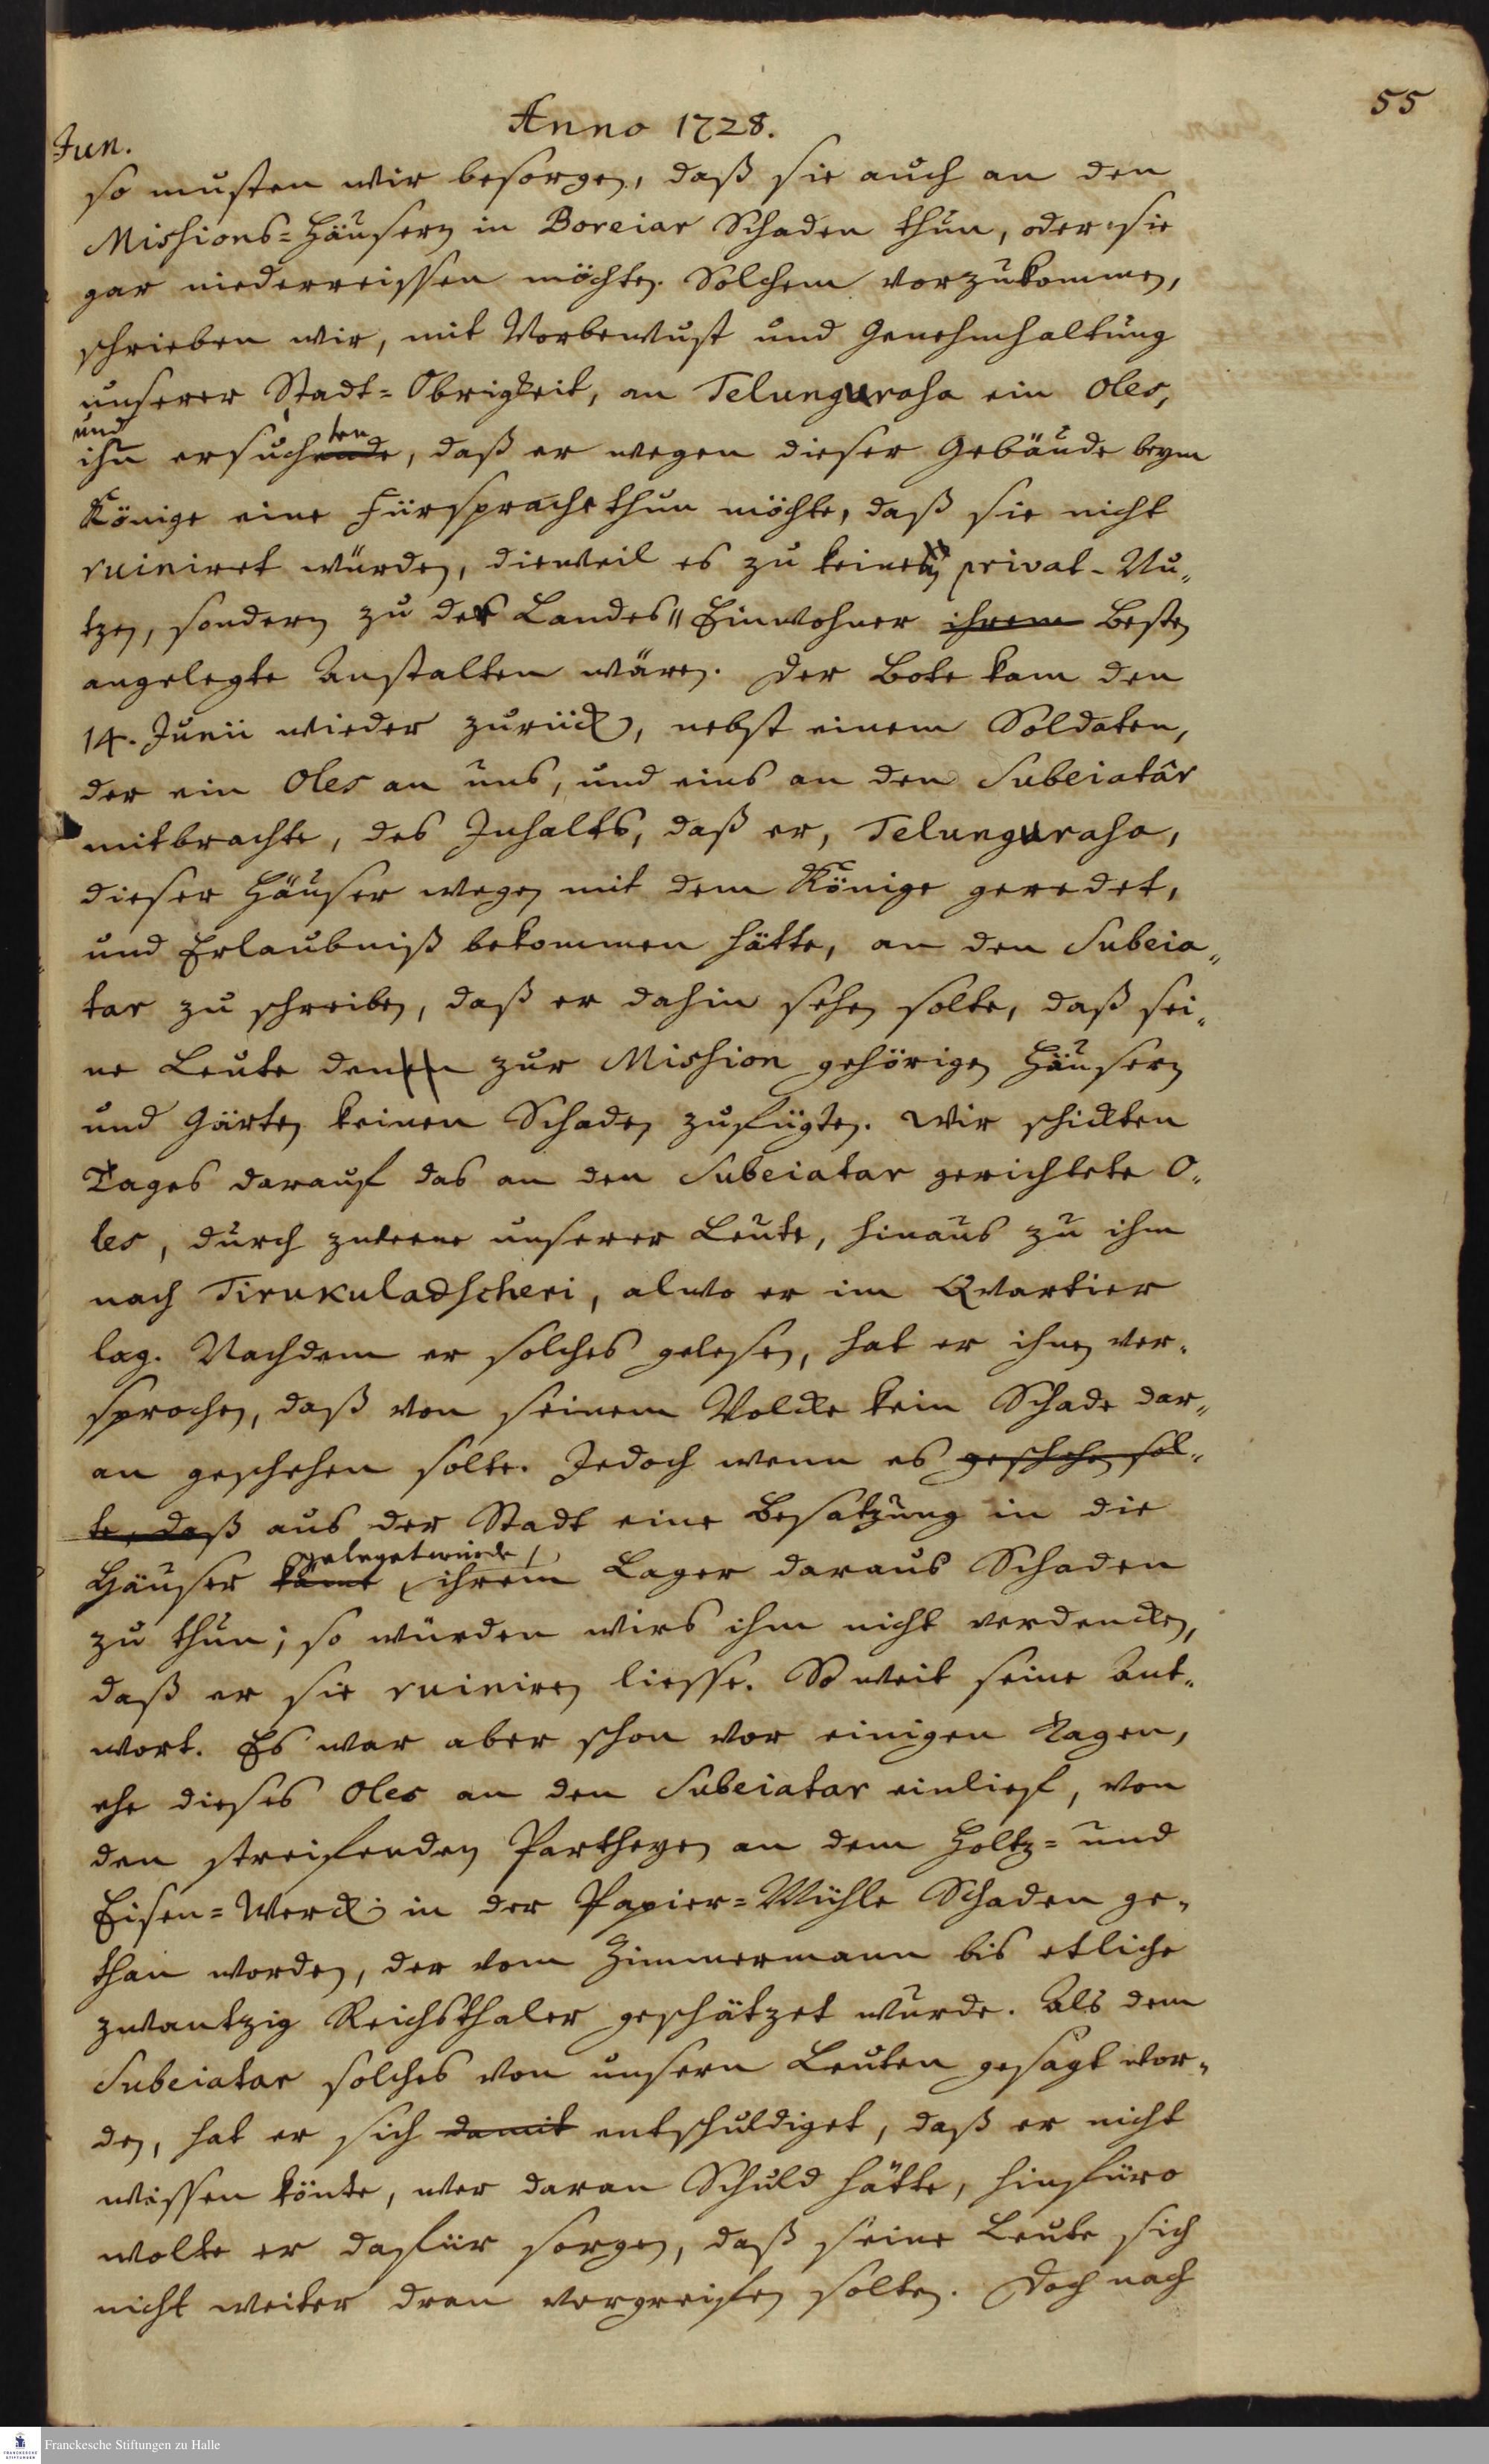 55
Anno 1728.
Jun.
so musten wir besorgen, daß sie auch an den
Missions=Häusern in Boreiar Schaden thun, oder sie
gar niederreissen möchten. Solchem vorzukommen,
schrieben wir, mit Vorbewust und Genehmhaltung
unserer Stadt=Obrigkeit, an Telunguraha ein Oles,
und ten
ihn ersuchende, daß er wegen dieser Gebäude beym
Könige eine Fürsprache thun möchte, daß sie nicht
ruiniret würden, dieweil es zu keinen privat-Nu-
tzen, sondern zu der Landes" Einwohner ihrem Besten
angelegte Anstalten wären. Der Bote kam den
14. Junii wieder zurück, nebst einem Soldaten,
der ein Oles an uns, und eins an den Subeiatâr
mitbrachte, des Inhalts, daß er, Telunguraha,
dieser Häuser wegen mit dem Könige geredet,
und Erlaubniß bekommen hätte, an den Subeia-
tar zu schreiben, daß er dahin sehen solte, daß sei-
ne Leute denen zur Mission gehörigen Häusern
und Gärten keinen Schaden zufügten. Wir schickten
Tages darauf das an den Subeiatar gerichtete O-
les, durch zweene unserer Leute, hinaus zu ihm
nach Tirukuladscheri, alwo er im Qvartier
lag. Nachdem er solches gelesen, hat er ihnen ver-
sprochen, daß von seinem Volcke kein Schade dar-
an geschehen solte. Jedoch wenn es geschehen sol-
te, daß aus der Stadt eine Besatzung in die
geleget würde,
Häuser kämt, ihrem Lager daraus Schaden
zu thun; so würden wirs ihm nicht verdencken,
daß er sie ruiniren liesse. So weit seine Ant-
wort. Es war aber schon vor einigen Tagen,
ehe dieses Oles an den Subeiatar einlief, von
den streifenden Partheyen an dem Holtz= und
Eisen=Werck in der Papier=Mühle Schaden ge-
than worden, der vom Zimmermann bis etliche
zwantzig Reichsthaler geschätzet wurde. Als dem
Subeiatar solches von unsern Leuten gesagt wor-
den, hat er sich damit entschuldiget, daß er nicht
wissen könte, wer daran Schuld hätte, hinfüro
wolte er dafür sorgen, daß seine Leute sich
nicht weiter dran vergreifen solten. Doch nach
Franckesche Stiftungen zu Halle